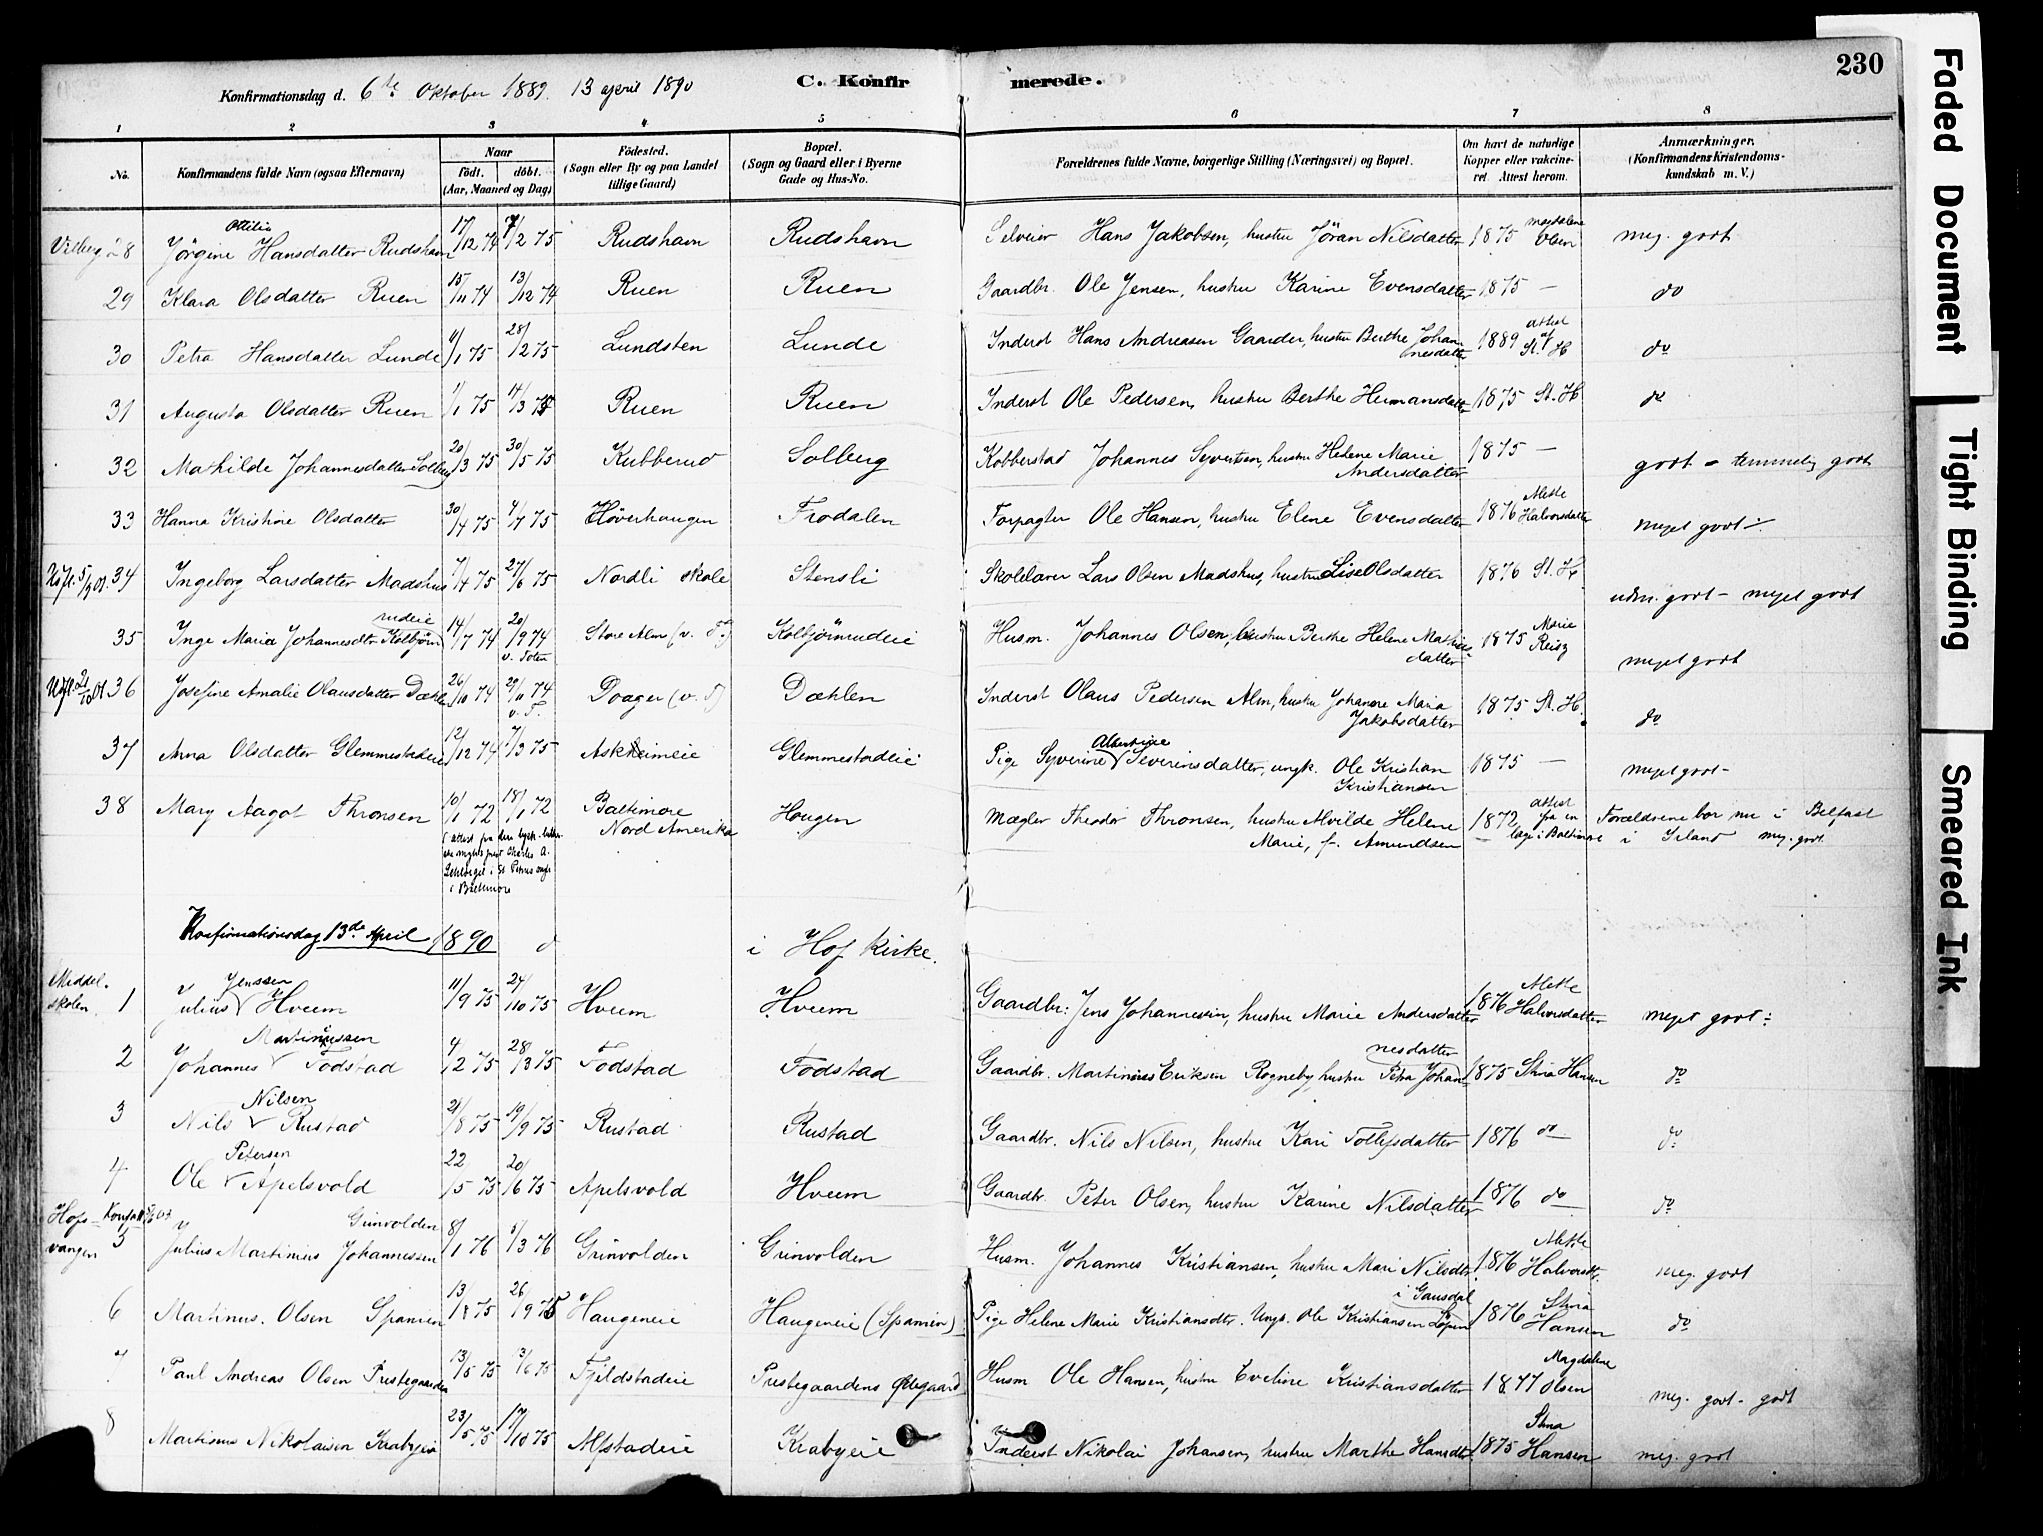 230
Konfirmationsdag d. 6te Oktober 1889. 13 april 1890
C. Konfirmerede.
1 2 3 4 5 6 7 8
No. Konfirmandens fulde Navn (ogsaa Efternavn) Naar født. døbt. (Aar, Maaned og Dag) Fødested. (Sogn eller By og paa Landet tillige Gaard) Bopæl. (Sogn og Gaard eller i Byerne Gade og Hus-No. Forældrenes fulde Navne, borgerlige Stilling (Næringsvei) og Bopæl. Om havt de naturlige Kopper eller vakcineret. Attest herom. Anmærkninger. (Konfirmandens Kristendomskundskab m. V.)
Vilberg 28 Jørgine Ottilie Hansdatter Rudshavn 17/12 74 7/2 75 Rudshavn Rudshavn Selveier Hans Jakobsen, hustru Jøran Nilsdatter 1875 Magdalene Olsen meg. godt
29 Klara Olsdatter Ruen 15/11 74 13/12 74 Ruen Ruen Gaardbr. Ole Jensen, hustru Karine Evensdatter 1875 — do
30 Petra Hansdatter Lunde 4/1 75 28/2 75 Lundsten Lunde Inderst Hans Andreasen Gaarder, hustru Berthe Johannesdatter 1889 attest af St. H do
31 Augusta Olsdatter Ruen 1/1 75 14/3 75 Ruen Ruen Inderst Ole Pedersen, hustru Berthe Hermansdatter 1875 St. H do
32 Mathilde Johannesdatter Solberg 20/3 75 30/5 75 Kubberud Solberg Kobberstad Johannes Syvertsen, hustru Helene Marie Andersdatter 1875 — godt - temmelig godt
33 Hanna Kristine Olsdatter 30/4 75 4/7 75 Høverhaugen Frodalen Forpagter Ole Hansen, hustru Elene Evensdatter 1876 Mette Halvorsdatter meget godt ÷
34 Ingeborg Larsdatter Madshus 7/4 75 27/6 75 Nordli skole Stensli Skolelærer Lars Olsen Madshus, hustru Lise Olsdatter 1876 St. H. udm. godt - meget godt
35 Inge Maria Johannesdtr Kolbjørnrudeie 14/7 74 20/9 74 v. Toten Store Alm (v. T.) Kolbjörnrudeie Husm. Johannes Olsen, hustru Berthe Helene Mathisdatter 1875 Marie Reisz meget godt
36 Josefine Amalie Olausdatter Dæhlen 26/10 74 29/11 74 v. T. Doager (v. T) Dæhlen Inderst Olaus Pedersen Alm, hustru Johanne Maria Jakobsdatter 1875 St. H. do
37 Anna Olsdatter Glemmestadeie 12/12 74 7/3 75 Askheimeie Glemmestadeie Pige Syverine Albertine Severinsdatter, ungk. Ole Kristian Kristiansen 1875 — meget godt -
38 Mary Aagot Thronsen 10/1 72 18/1 72 Baltimore Nord Amerika Haugen Mægler Theodor Thronsen, hustru Alvilde Helene Marie, f. Amundsen 1872, attest fra en læge i Baltimore Forældrene bor nu i Belfast i Irland meg. godt
(attest fra den
Charles A.
i St Petrus
i Baltimore
Konfirmationsdag 13de April 1890 i Hof Kirke.
Middelskolen. 1 Julius Jenssen Hveem 11/9 75 24/10 75 Hveem Hveem Gaardbr. Jens Johannessen, hustru Marie Andersdatter 1876 Mette Halvorsdatter meget godt ÷
2 Johannes Martinussen Fodstad 4/2 75 28/3 75 Fodstad Fodstad Gaardbr. Martinus Eriksen Rogneby, hustru Petra Johannesdatter 1875 Stina Hansen do
3 Nils Nilsen Rustad 21/8 75 19/9 75 Rustad Rustad Gaardbr. Nils Nilsen, hustru Kari Tollefsdatter 1876 do do
4 Ole Petersen Apelsvold 22/5 75 20/6 75 Apelsvold Hveem Gaardbr. Peter Olsen, hustru Karine Nilsdatter 1876 do do
Hofsvangen 5 Julius Martinus Johannessen Grinvolden 8/1 76 5/3 76 Grinvolden Grinvolden Husm. Johannes Kristiansen, hustru Mari Nilsdtr. 1876 Mette Halvorsdtr. meg. godt
6 Martinus. Olsen Spanien 13/8 75 26/9 75 Haugeneie Haugeneie (Spanien) Pige Helene Marie Kristiansdtr. Ungk. Ole Kristiansen Løpen i Gausdal 1876 Stina Hansen do
7 Paul Andreas Olsen Prestegaarden 13/5 75 13/6 75 Fjeldstadeie Prestegaardens Ødegaard Husm Ole Hansen, hustru Eveline Kristiansdatter 1877 Magdalene Olsen meg. godt - godt
8 Martinus Nikolaisen Krabyeie 23/5 75 17/10 75 Alfstadeie Krabyeie Inderst Nikolai Johansen, hustru Marthe Hansdtr 1875 Stina Hansen meg. godt
Faded Document
Tight Binding
Smeared Ink